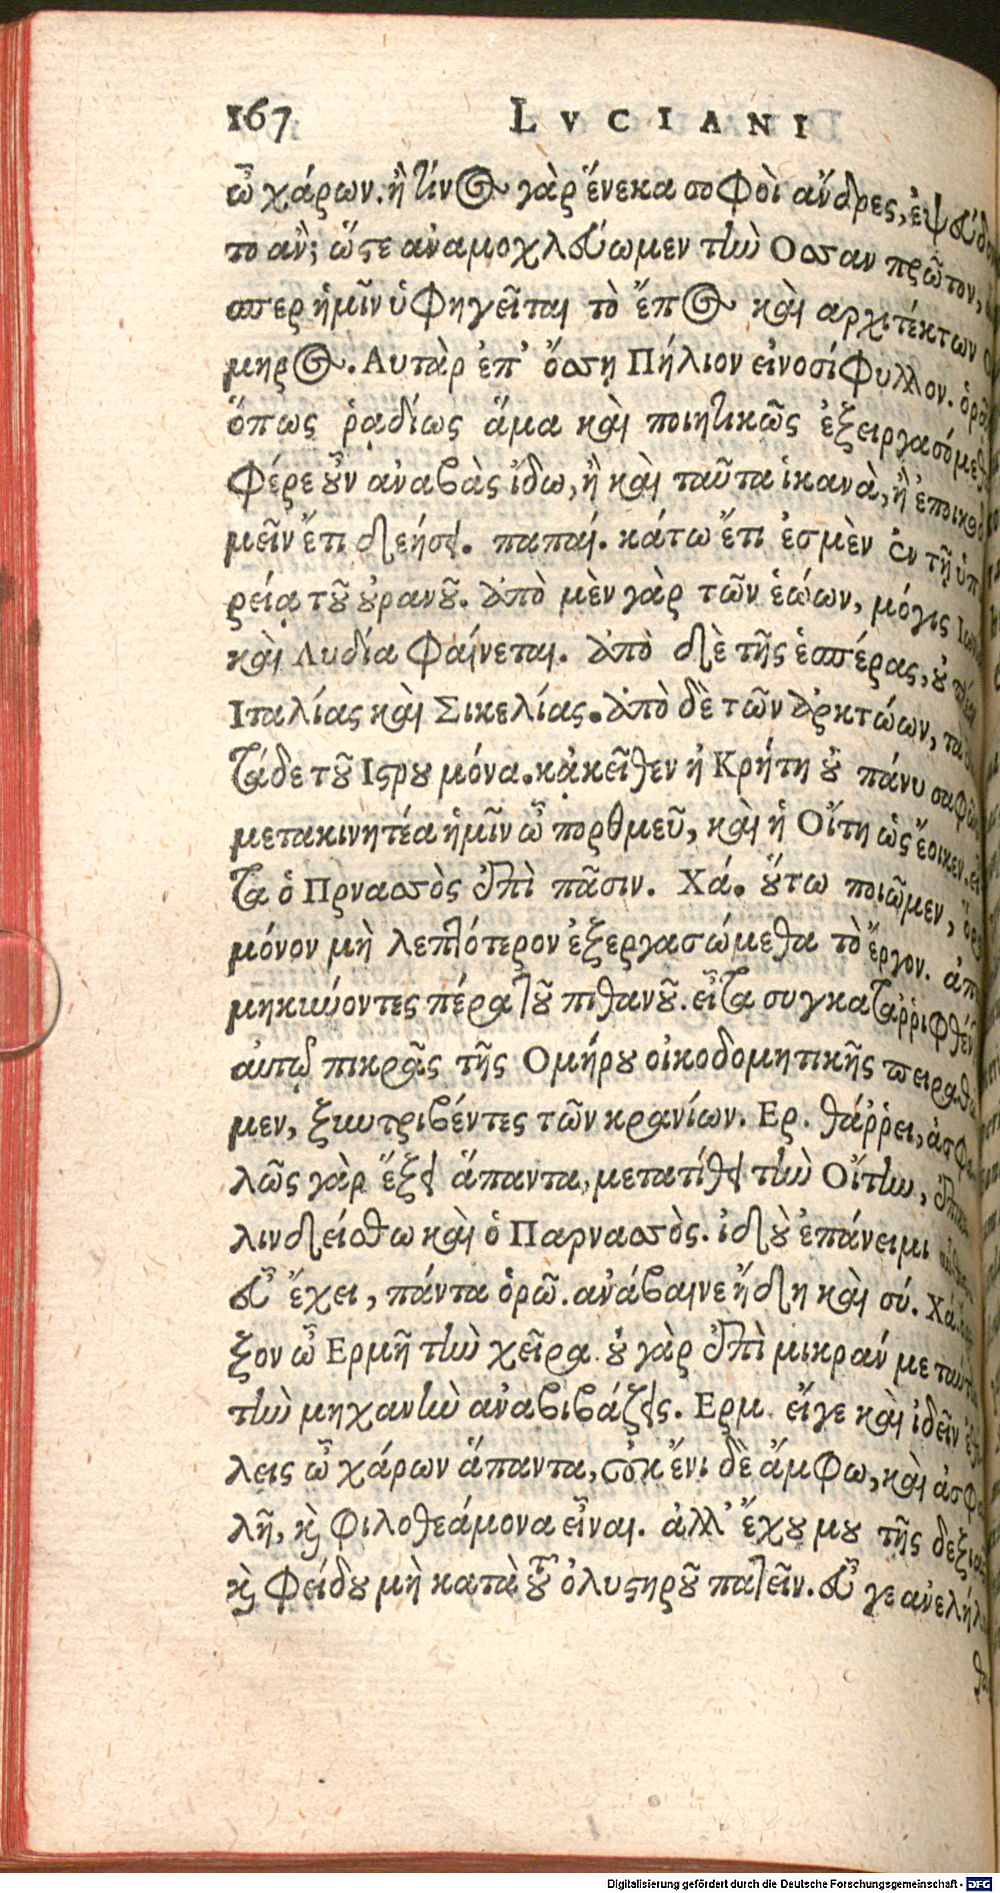 167 LVCIANI
ὦ χάρων. ἢ τίνος γὰρ ἕνεκα σοφοὶ ἄνδρες, ἐψεύδον
το ἂν; ὥστε ἀναμοχλεύωμεν τὴν Οσσαν πρῶτον,
σπερ ἡμῖν ὑφηγεῖται τὸ ἔπος καὶ αρχιτέκτων
μηρος. Αυτὰρ ἐπ' ὄσσῃ Πήλιον εἰνοσίφυλλον. ὁρᾷς
ὅπως ῥᾳδίως ἅμα καὶ ποιητικῶς ἐξειργασάμεθ
φέρε οὖν ἀναβὰς ἴδω, ἢ καὶ ταῦτα ἱκανὰ, ἢ ἐποικοδ
μεῖν ἔτι δεήσει. παπαί. κάτω ἔτι ἐσμὲν ἐν τῇ ὑπ
ρείᾳ τοῦ οὐρανοῦ. ἀπὸ μὲν γὰρ τῶν ἑώων, μόγις Ιων
καὶ Λυδία φαίνεται. ἀπὸ δὲ τῆς ἑσπέρας, οὐ πλέον
Ιταλίας καὶ Σικελίας. ἀπὸ δὲ τῶν ἀρκτώων, τὰ
τάδε τοῦ Ιστρου μόνα. κᾀκεῖθεν ἡ Κρήτη οὐ πάνυ σαφῶς
μετακινητέα ἡμῖν ὦ πορθμεῦ, καὶ ἡ Οἴτη ὡς ἔοικεν. εἶ
τα ὁ Πρνασσὸς ἐπὶ πᾶσιν. Χά. οὕτω ποιῶμεν, ὅρα
μόνον μὴ λεπτότερον ἐξεργασώμεθα τὸ ἔργον. ἀπο
μηκύνοντες πέρα τοῦ πιθανοῦ. εἶτα συγκαταῤῥιφθέν
αὐτῷ πικρᾶς τῆς Ομήρου οἰκοδομητικῆς πειραθῶ
μεν, ξυντριβέντες τῶν κρανίων. Ερ. θάῤῥει, ἀσφα
λῶς γὰρ ἕξει ἅπαντα, μετατίθει τὴν Οἴτην, ἐπικυ
λινδείσθω καὶ ὁ Παρνασσὸς. ἰδοὺ ἐπάνειμι
εὖ ἔχει, πάντα ὁρῶ. ἀνάβαινε ἤδη καὶ σύ. Χά.
ξον ὦ Ερμῆ τὴν χεῖρα. οὐ γὰρ ἐπὶ μικράν με ταύτην
τὴν μηχανὴν ἀναβιβάζεις. Ερμ. εἴγε καὶ ἰδεῖν ἐθέ
λεις ὦ χάρων ἅπαντα, οὐκ ἔνι δὲ ἄμφω, καὶ ἀσφα
λῆ, καὶ φιλοθεάμονα εἶναι. ἀλλ' ἔχου μου τῆς δεξιας
καὶ φείδου μὴ κατὰ τοῦ ὀλυστηροῦ πατεῖν. εὖ γε ἀνελήλυ
θα
Digitalisierung gefördert durch die Deutsche Forschungsgemeinschaft - DFG